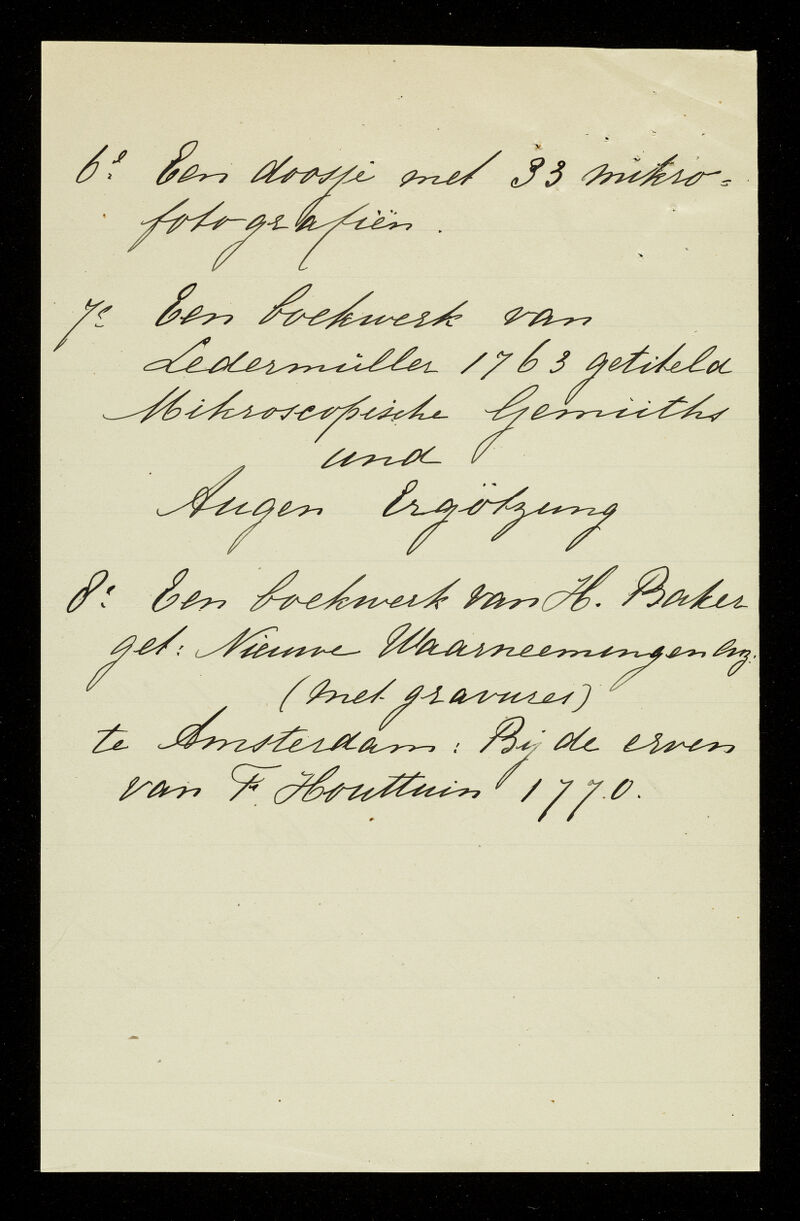 6e. Een doosje met 33 mikro=
fotografiën.
7e. Een boekwerk van
Ledermüller 1763 getiteld
Mikroscopische Gemüiths
und
Augen Ergötzung
8e. Een boekwerk van H. Baker
get: Nieuwe Waarneemingen enz.
(met gravures)
te Amsterdam: Bij de erven
van F. Houttuin 1770.